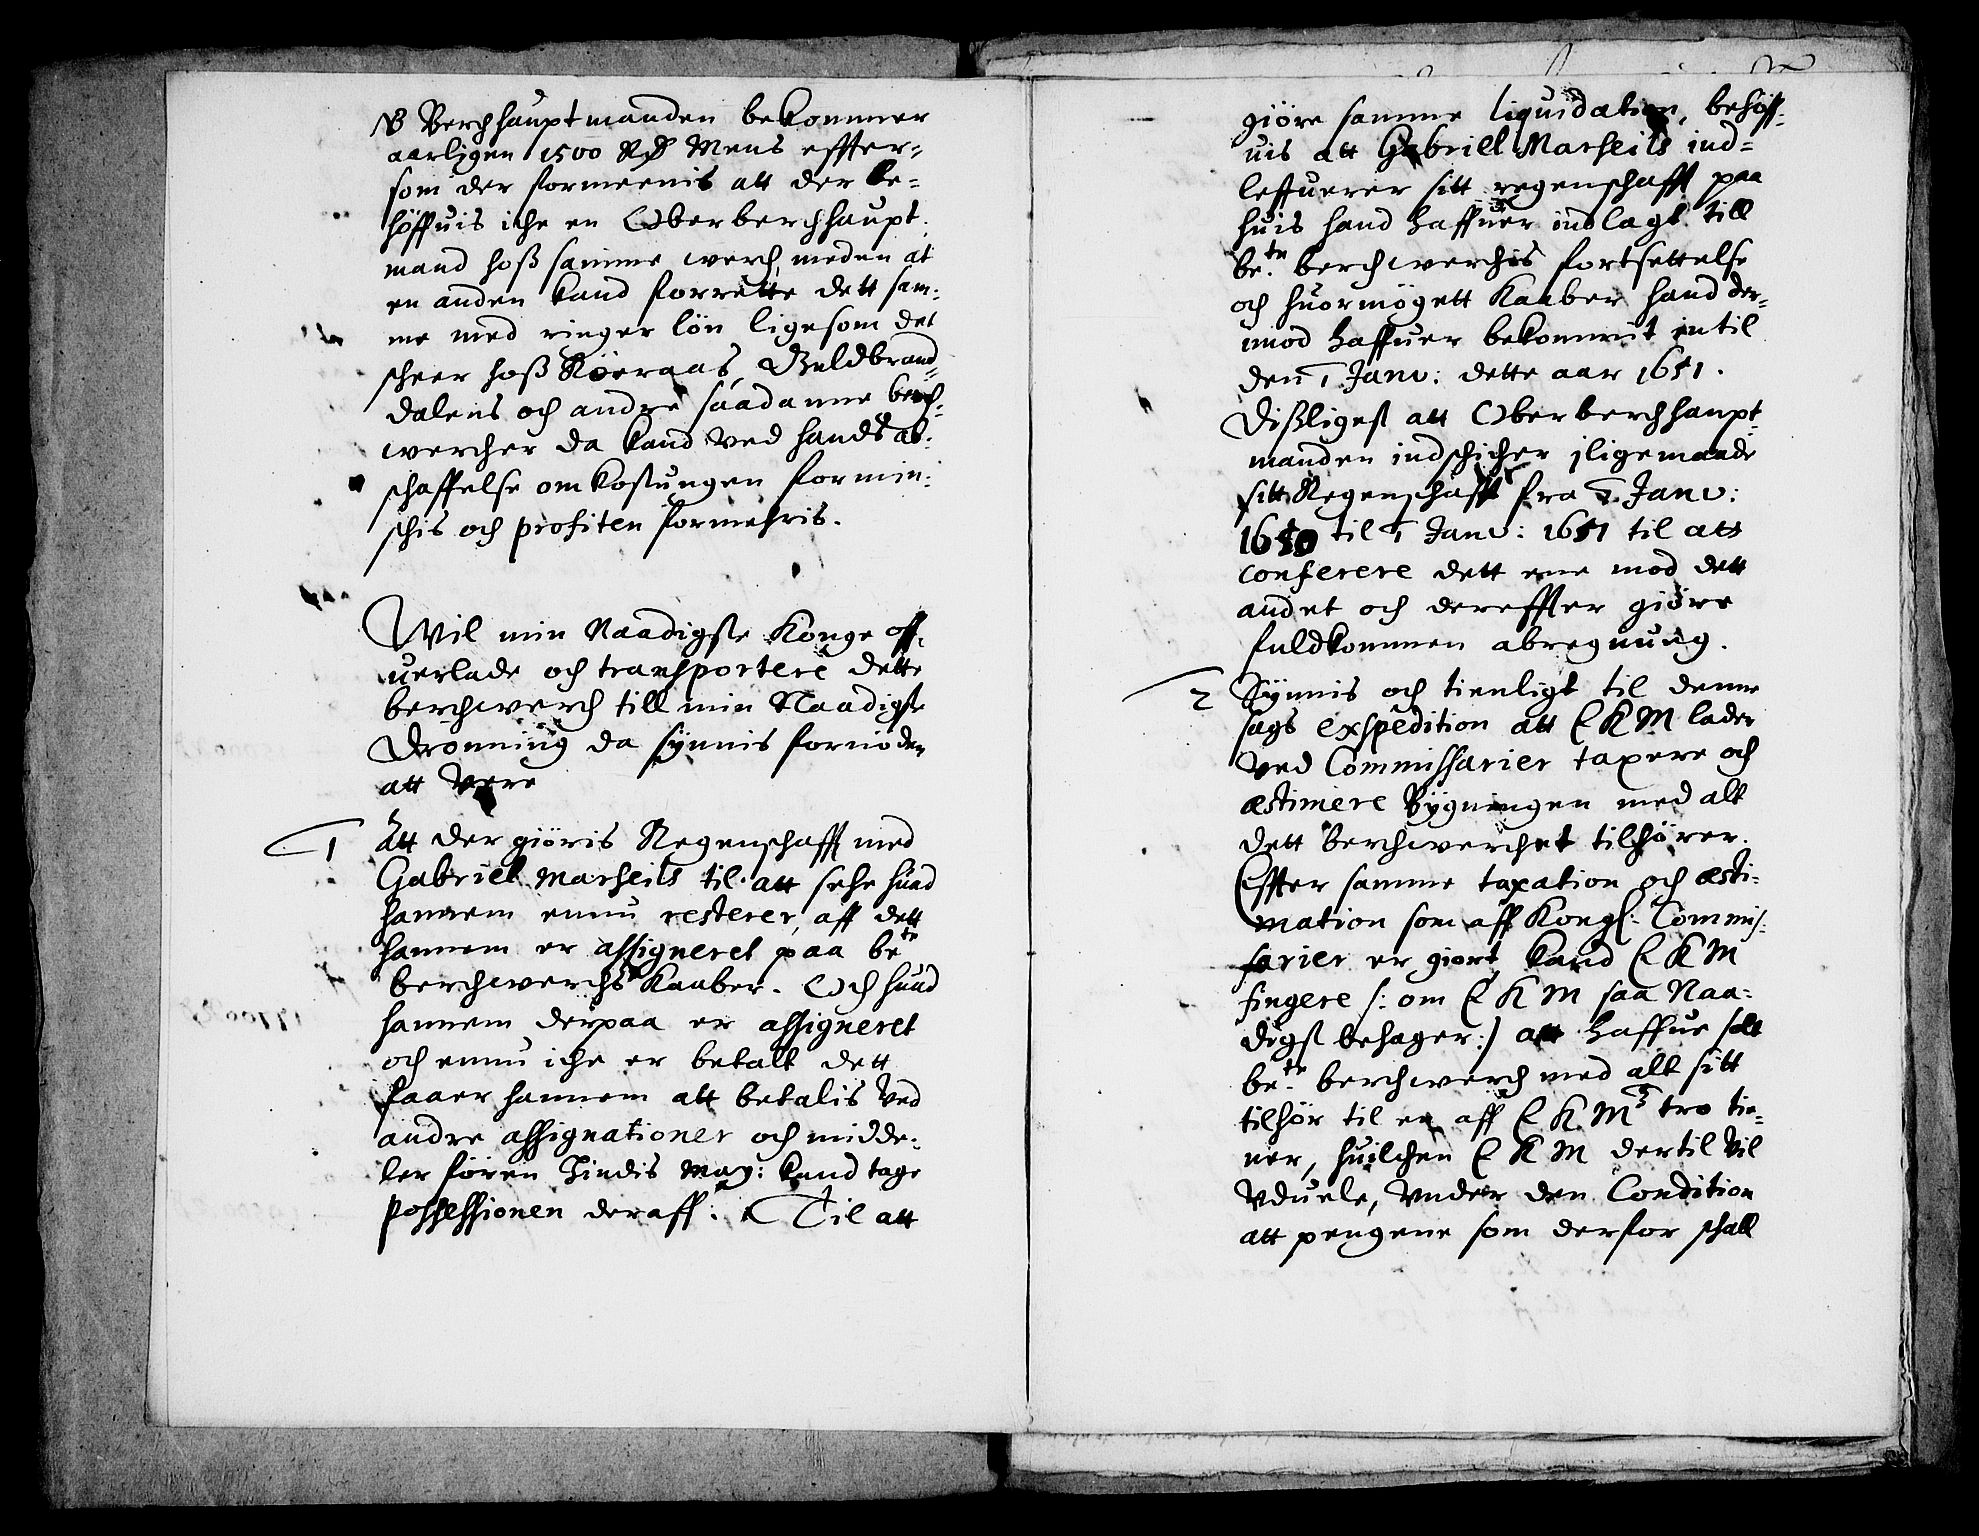 NB Berchhauptmanden bekommer
aarligen 1500 Rd Mens effter-
som der formeenis att der be-
höffuis iche en Oberberchhaupt
mand hoß samme werch, meden at
en anden kand forrette dett sam-
me med ringer lön ligesom det
scheer hoß Röeraas, Guldbrand-
dalens och andre saadanne berch-
wercher da kand ved hands af-
schaffelse omkostungen formin-
schis och profiten formehris.
Wil min Naadigste Konge off-
uerlade och transportere dette
berchwerch till min Naadigste
Dronning da synnis fornöden
att vere
1 Att der giöris Regenschafft med
Gabriel Marseils til att sehe huad
hannem ennu resterer, aff dett
hannem er assigneret paa bete
berchwerchs Kaaber. Och huad
hannem derpaa er assigneret
och ennu iche er betalt dett
faaer hannem att betalis ved
andre assignationer och midde-
ler fören Hindis May: kand tage
Possessionen deraff. Til att
giöre samme liquidation, behöff-
uis att Gabriell Marseils ind-
leffuerer sitt regenschafft paa
huis hand haffuer indlagt till
bete berchwerchis fortsettelse
och huormögett Kaaber hand der-
imod haffuer bekommit intil
den 1 Janv: dette aar 1651.
Dißligest att Oberberchhaupt-
manden indschicher iligemaade
sitt Regenschafft fra 1 Janv:
1650 til 1 Janv: 1651 til att
conferere dett ene mod dett
andet och dereffter giöre
fuldkommen abregnung.
2 Synnis och tienligt til denne
sags expedition att E K M lader
ved Commissarier taxere och
æstimere Bygningen med alt
dett berchwerchet tilhörer.
Effter samme taxation och æsti-
mation som aff Kongl: Commis-
sarier er giort kand E K M
fingere /: om E K M saa Naa-
digst behager :/ att haffue solt
bete berchwerch med alt sitt
tilhör til en aff E K Ms tro tie-
ner, huilchen E K M dertil vil
vduele, vnder den Condition
att pengene som derfor schall